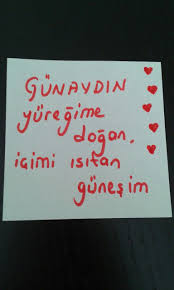 GÜNAYDIN
yüreğime
doğan,
içimi ısıtan
güneşim